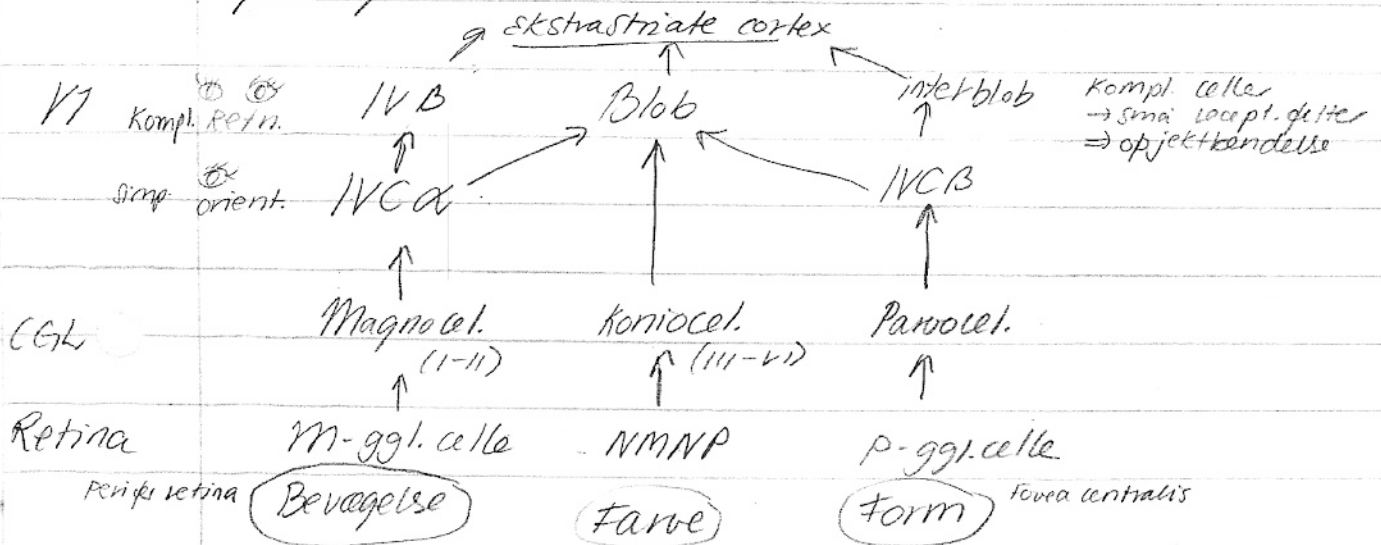 Ekstrastriate cortex
V1 Kompl. Retn. IVB Blob interblob Kompl. celler
→ små recept. felter
⇒ opjektkendelse
simp orient. IVCα IVCB
CGL Magnocel. Koniocel. Parvocel.
(I-II) (III-VI)
Retina M-ggl. celle NMNP P-ggl. celle
Perifer retina Bevægelse Farve Form Fovea centralis